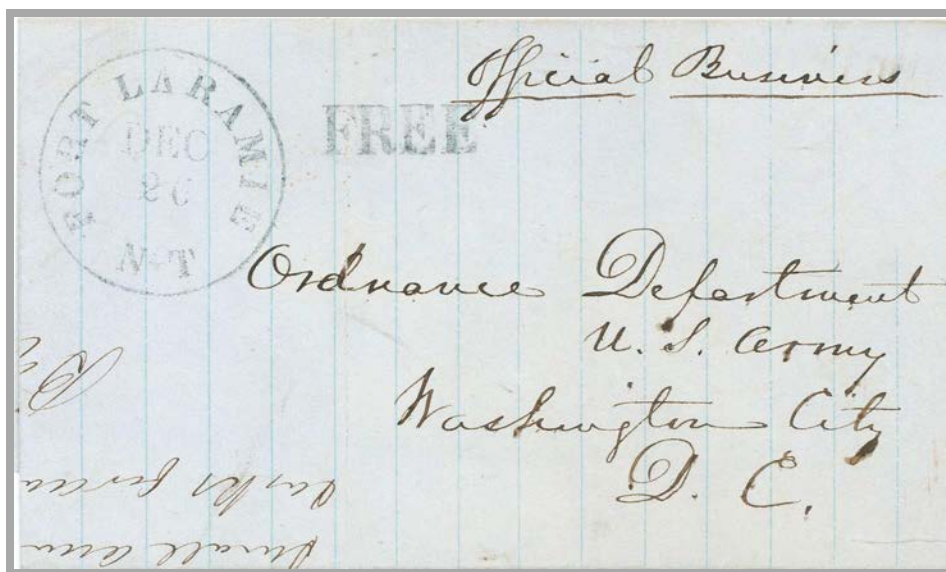 Official Business
FORT LARAMIE
DEC
26
N-T
FREE
Ordnance Department
U. S. Army
Washington City
D. C.
Small arm